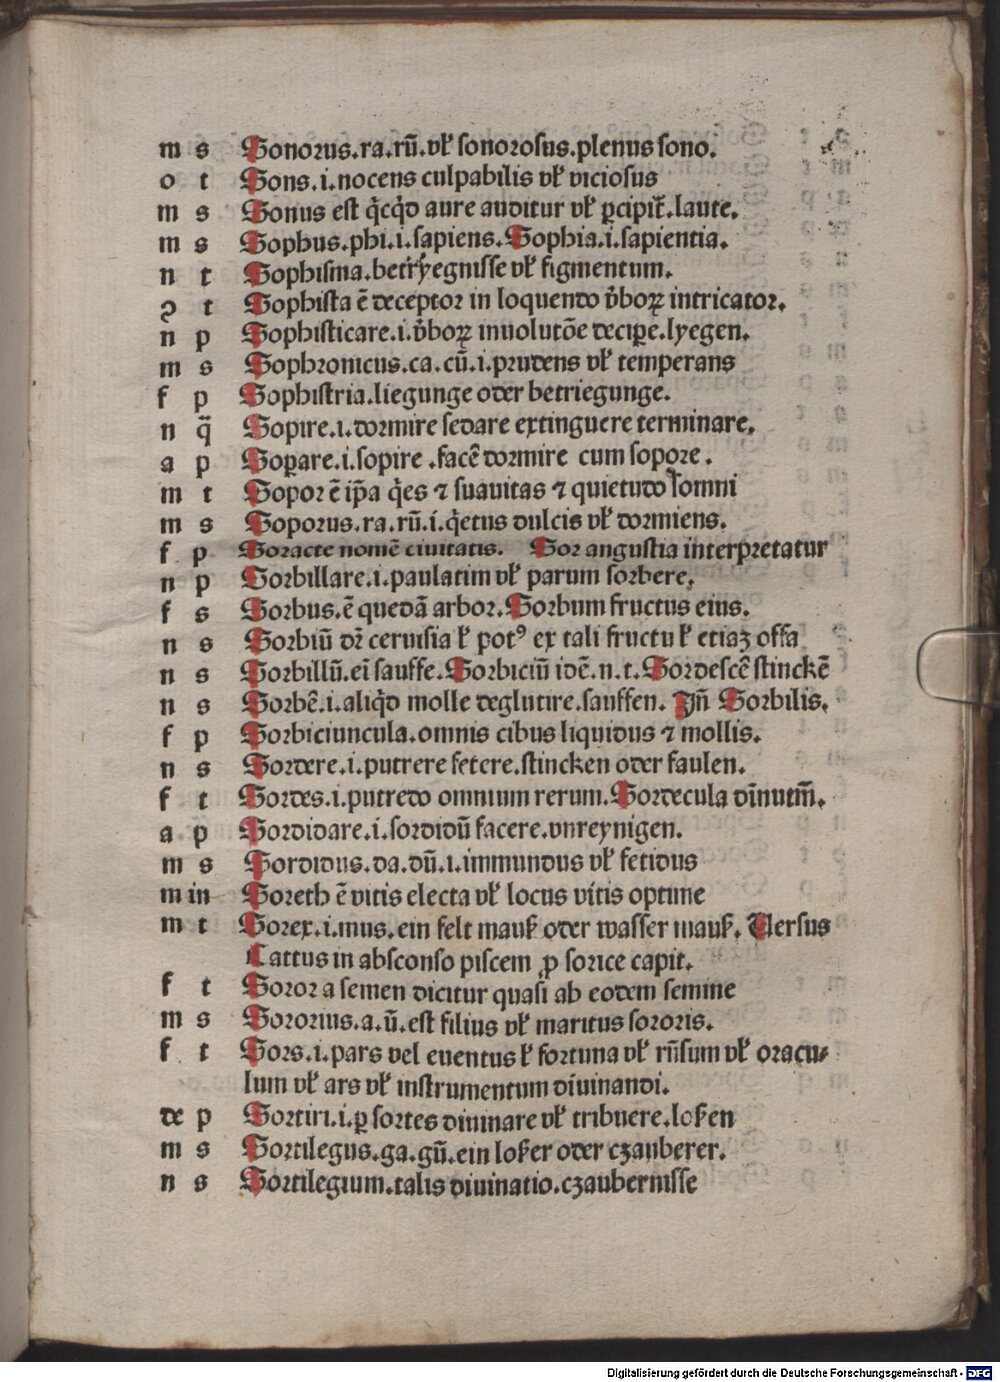 m s Sonorus.ra.rū.vł sonorosus.plenus sono.
o t Sons.i.nocens culpabilis vł viciosus
m s Sonus est q̇cq̇d aure auditur vł ꝑcipit̄.laute.
m s Sophus.phi.i.sapiens.Sophia.i.sapientia.
n t Sophisma.betryegnisse vł figmentum.
ꝯ t Sophista ē deceptor in loquendo v̇boꝝ intricator.
n p Sophisticare.i.v̇boꝝ inuolutōe deciꝑe.lyegen.
m s Sophronicus.ca.cū.i.prudens vł temperans
f p Sophistria.liegunge oder betriegunge.
n q̄ Sopire.i.dormire sedare extinguere terminare.
a p Soꝑare.i.sopire .facē dormire cum sopore.
m t Sopor ē ip̄a q̇es ⁊ suauitas ⁊ quietudo somni
m s Soporus.ra.rū.i.q̇etus dulcis vł dormiens.
f p Soracte nomē ciuitatis. Sor angustia interpretatur
n p Sorbillare.i.paulatim vł parum sorbere.
f s Sorbus.ē quedā arbor.Sorbum fructus eius.
n s Sorbiū dr̄ ceruisia ł potꝰ ex tali fructu ł etiaꝫ offa
n s Sorbillū.ei sauffe.Sorbiciū idē.n.t.Sordescē stinckē
n s Sorbē.i.aliq̇d molle deglutire.sauffen. Jn̄ Sorbilis.
f p Sorbiciuncula.omnis cibus liquidus ⁊ mollis.
n s Sordere.i.putrere fetere.stincken oder faulen.
f t Sordes.i.putredo omnium rerum.Sordecula dīnutm̄.
a p Sordidare.i.sordidū facere.vnreynigen.
m s Sordidus.da.dū.i.immundus vł fetidus
m in Soreth ē vitis electa vł locus vitis optime
m t Sorex.i.mus.ein felt mauß oder wasser mauß. Versus
Cattus in absconso piscem ꝓ sorice capit.
f t Soror a semen dicitur quasi ab eodem semine
m s Sororius.a.ū.est filius vł maritus sororis.
f t Sors.i.pars vel euentus ł fortuna vł rn̄sum vł oracu⸗
lum vł ars vł instrumentum diuinandi.
de p Sortiri.i.ꝑ sortes diuinare vł tribuere.loßen
m s Sortilegus.ga.gū.ein loßer oder czauberer.
n s Sortilegium.talis diuinatio.czaubernisse
Digitalisierung gefördert durch die Deutsche Forschungsgemeinschaft - DFG